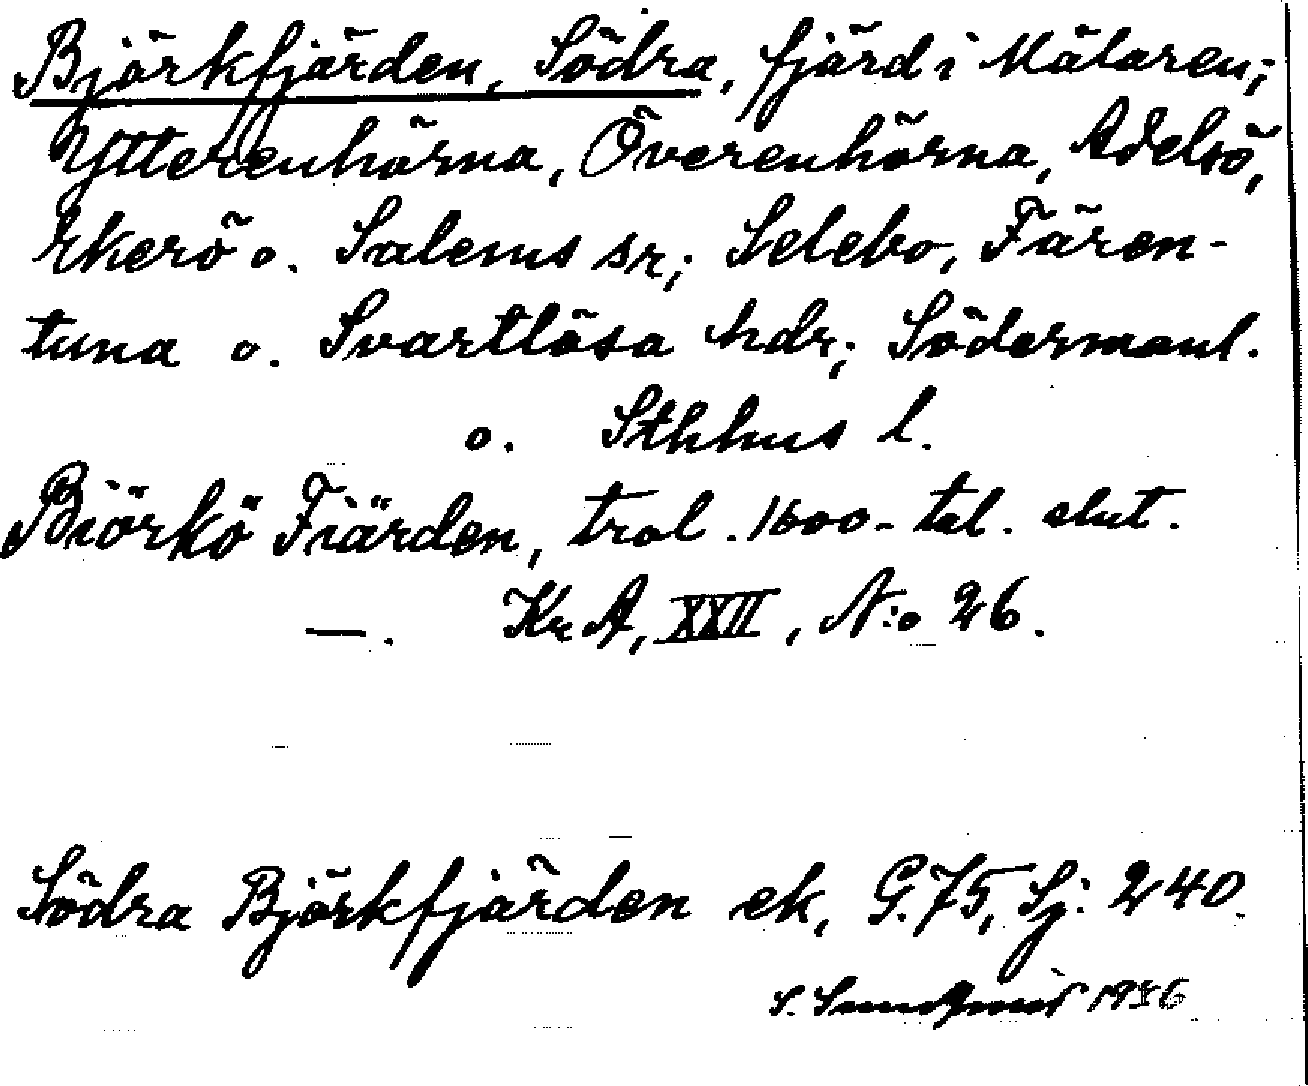 Björkfjärden, Södra, fjärd i Mälaren;
Ytterenhörna, Överenhörna, Adelsö,
Ekerö o. Salems sr; Selebo, Fären-
tuna o. Svartlösa hdr; Södermanl.
o. Sthlms l.
Biörkö Fiärden, trol. 1600-tal. slut.
—. Kr A, XXII, N:o 26.
Södra Björkfjärden ek. G. 75, Sj: 240.
S. 1936